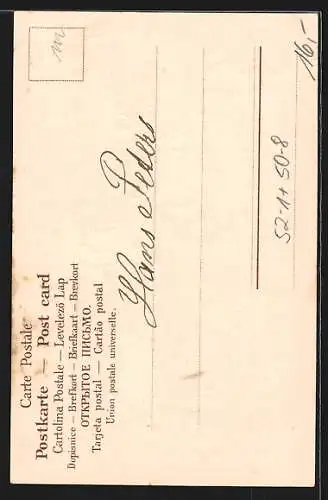 Carte Postale
Postkarte — Post card
Cartolina Postale — Levelező Lap
Dopisnice — Brefkort — Briefkaart — Brevkort
ОТКРЫТОЕ ПИСЬМО.
Tarjeta postal — Cartão postal
Union postale universelle.
Hans Peders
52-1+50-8
16,-